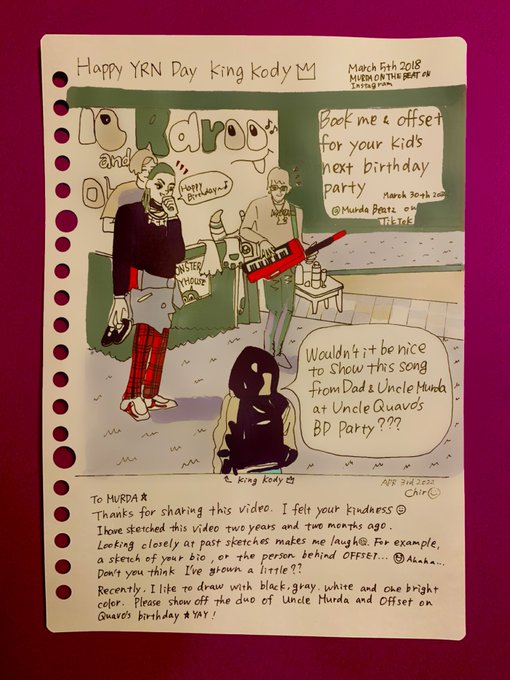 Happy YRN Day King Kody
March 5th 2018
MURDA ON THE BEAT ON
Instagram
To Rdroo
and
Oh
Happy
Birthday~♪
Book me & offset
for your kid's
next birthday
party
March 30th 2022
@Murda Beatz on
TikTok
ONSTER
YHOUSE
Wouldn't it be nice
to show this song
from Dad & Uncle Murda
at Uncle Quavo's
BD Party???
King Kody
APR 3rd 2022
Chir☺
To MURDA★
Thanks for sharing this video. I felt your kindness☺
I have sketched this video two years and two months ago.
Looking closely at past sketches makes me laugh☺. For example,
a sketch of your bio, or the person behind OFFSET... ☺ Ahaha...
Don't you think I've grown a little??
Recently, I like to draw with black, gray, white and one bright
color. Please show off the duo of Uncle Murda and Offset on
Quavo's birthday★YAY!